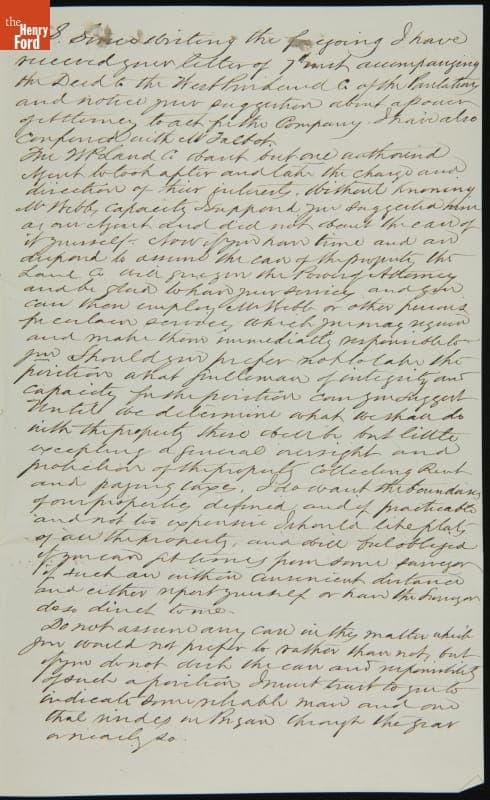 the
Henry
Ford
P.S. Since writing the foregoing I have
received your letter of 7th inst accompanying
the Deed to the West Land Co of the Plantation
and notice your suggestion about a power
of Attorney to act for the Company. I have also
Conferred with Mr Talbot.
The Land Co want but one authorized
Agent to look after and take the charge and
direction of their interests. Without knowing
Mr Webbs capacity I supposed you suggested him
as our Agent and did not want the care of
it yourself. Now if you have time and are
disposed to assume the care of the property the
Land Co will give you the Power of Attorney
and be glad to have your services and you
can then employ Mr Webb or other persons
for certain services which you may require
and make them immediately responsible to
you. Should you prefer not to take the
position what gentleman of integrity and
capacity for the position can you suggest
Until we determine what we shall do
with the property there will be but little
excepting a general oversight and
protection of the property Collecting Rent
and paying taxes. I do want the boundaries
of our properties defined and if practicable
and not too expensive should like plats
of all the property, and will be obliged
if you can get terms from some surveyor
if such are within convenient distance
and either report yourself or have the Surveyor
do so direct to me.
Do not assume any care in this matter which
you would not prefer to rather than not, but
if you do not wish the care and responsibility
of such a position I must trust to you to
indicate some reliable man and one
that resides in through the year
or nearly so.